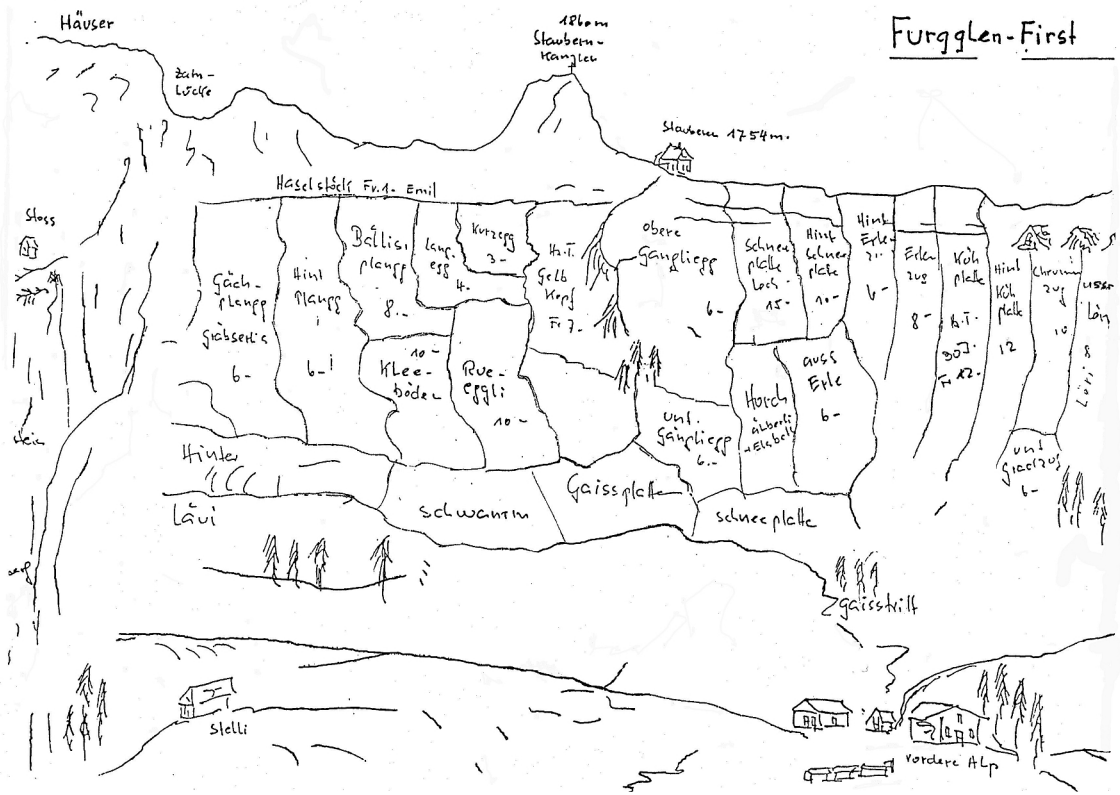 Häuser
1860m
Staubern-
Kanzlen
Furgglen-First
Zahn-
Lücke
Staubern 1754m.
Haselstöck Fr. 1.- Emil
Stoss
Gäch-
plangg
Gräbserlis
6-
Hint
Plangg
6-
Bällis
plangg
8.-
Lang-
egg
4.-
Kurzegg
3.-
H.T.
Gelb
Kopf
Fr 7.-
obere
Gängliegg
6.-
Schnee
platte
Loch-
15.-
Hint
Schnee
platte
10.-
Hint
Erle-
6-
Erlen
zug
8-
Küh
platte
H.T.
Fr 12.-
Hint
Küh
platte
12
zug
10
Löri 8
10-
Klee-
böden
Rue-
eggli
10.-
unt.
Gängliegg
6.-
Horch
auss
Erle
6-
unt
6-
Hinter
Lävi
schwamm
Gaissplatte
schneeplatte
gaisstritt
stelli
vordere Alp